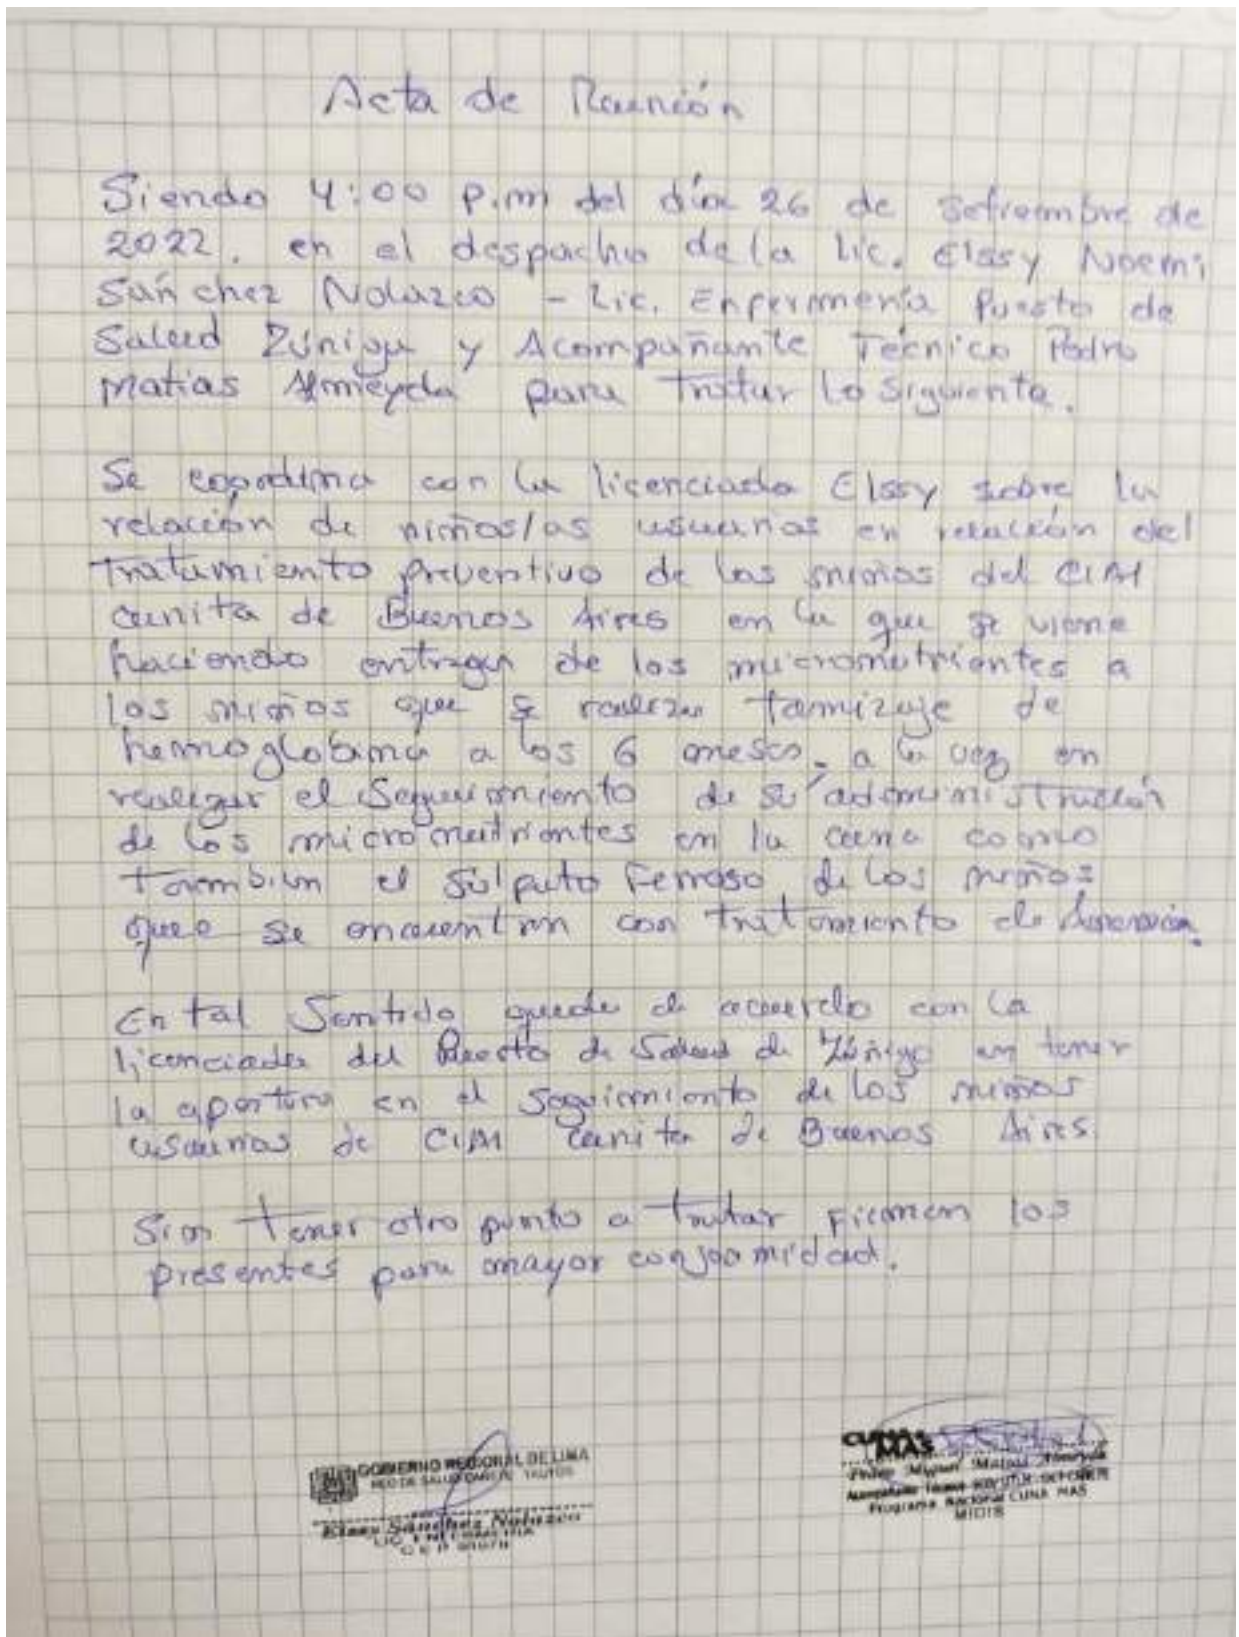 Acta de Reunión
Siendo 4:00 p.m del día 26 de setiembre de
2022. en el despacho de la Lic. Elssy Noemi
Sánchez Nolazco - Lic. Enfermería Puesto de
Salud Zúñiga y Acompañante Técnico Pedro
Matias Almeyda para tratar lo siguiente.
Se coordina con la licenciada Elssy sobre la
relación de niños/as usuarios en relación del
tratamiento preventivo de los niños del CIAI
cunita de Buenos Aires en la que se viene
haciendo entrega de los micronutrientes a
los niños que se realiza tamizaje de
hemoglobina a los 6 meses. a la vez en
realizar el seguimiento de su administración
de los micronutrientes en la cuna como
también el sulfato Ferroso de los niños
que se encuentran con tratamiento de
En tal Sentido queda de acuerdo con la
licenciada del Puesto de Salud de Zúñiga en tener
la apertura en el seguimiento de los niños
usuarios de CIAI cunita de Buenos Aires.
Sin tener otro punto a tratar firman los
presentes para mayor conformidad.
GOBIERNO REGIONAL DE LIMA
RED DE SALUD CAÑETE YAUYOS
Elssy Sánchez Nolazco
LIC. ENFERMERIA
C E P
CUNA MAS
Pedro Miguel Matias Almeyda
Acompañante Técnico
Programa Nacional CUNA MAS
MIDIS